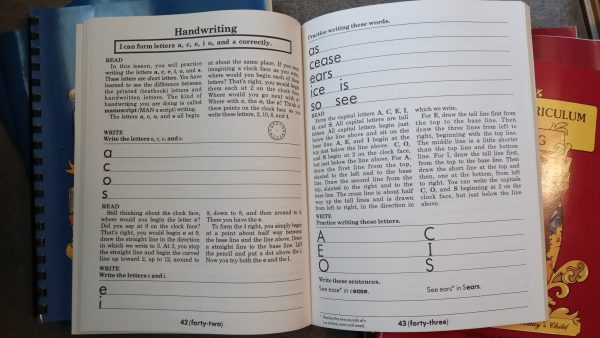 Handwriting
I can form letters a, c, e, i o, and s correctly.
READ
In this lesson, you will practice
writing the letters a, c, e, i, o, and s.
These letters are short letters. You have
learned to see the difference between
the printed (textbook) letters and
handwritten letters. The kind of
handwriting you are doing is called
manuscript script) writing.
The letters a, c, o, and s all begin
at about the same place. If you were
imagining a clock face as you
where would you begin each of
letters? That's right, you would begin
them each at 2 on the clock face.
Where would you go next with
With c, the o, the s? Think of
these points on the clock face as you
write these letters, 2, 10, 8, and 4.
WRITE
Write the letters a, c, o, and s.
a
c
o
s
READ
Still thinking about the clock face,
where would you begin the letter e?
Did you say at 9 on the clock face?
That's right, you would begin e at 9,
draw the straight line in the direction
in which we write to 3. At 3, you stop
the straight line and begin the curved
line up toward 2, up to 12, around to
9, down to 8, and then around to 4.
There you have the e.
To form the i right, you simply begin
at a point about half way between
the base line and the line above. Draw
a straight line to the base line. Lift
the pencil and put a dot above the i.
Now you try both the e and the i.
WRITE
Write the letters e and i.
e
i
42 (forty-two)
Practice writing these words.
as
cease
ears
ice is
so see
READ
Form the capital letters A, C, E, I,
O, and S. All capital letters are tall
letters. All capital letters begin just
below the line above and sit on the
base line. A, E, and I begin at the
top just below the line above. C, O,
and S begin at 2 on the clock face,
but just below the line above. For A,
draw the first line from the top,
slanted to the left and to the base
line. Draw the second line from the
top, slanted to the right and to the
base line. The cross line is about half
way up the tall lines and is drawn
from left to right, in the direction in
which we write.
For E, draw the tall line first from
the top to the base line. Then
draw the three lines from left to
right, beginning with the top line.
The middle line is a little shorter
than the top line and the bottom
line. For I, draw the tall line first,
from the top to the base line. Then
draw the short line at the top and
then, one at the bottom, from left
to right. You can write the capitals
C, O, and S beginning at 2 on the
clock face, but just below the line
above.
WRITE
Practice writing these letters.
A C
E I
O S
Write these sentences.
See ease* in cease. See ears* in Sears.
43 (forty-three)
CURRICULUM
Child